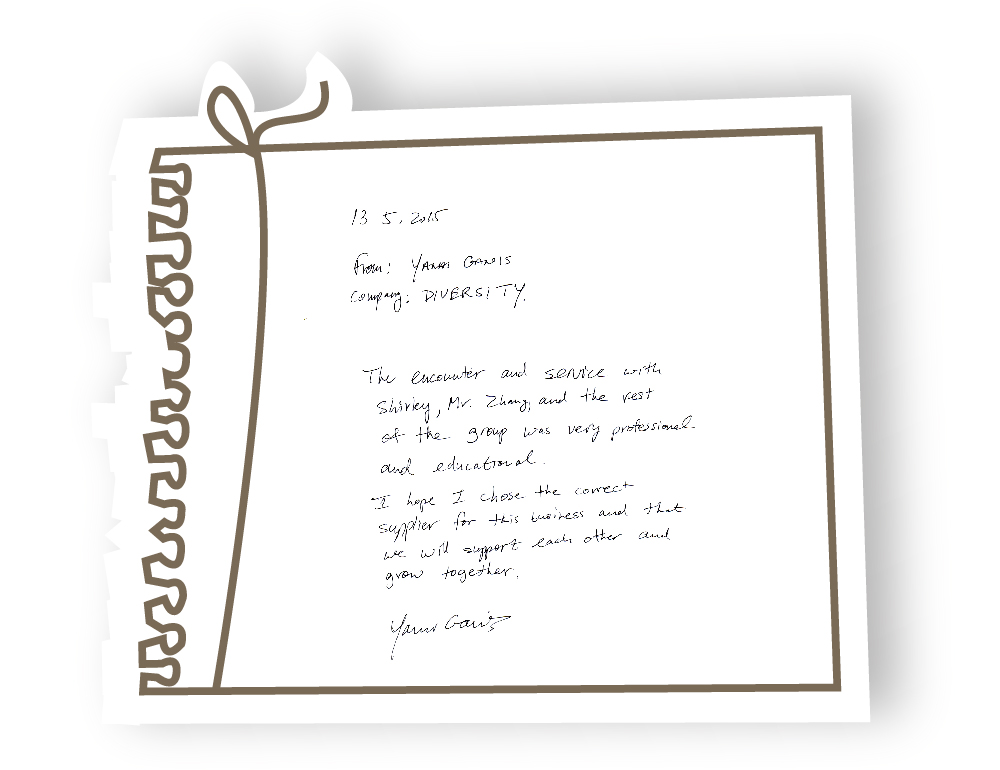 13 5. 2015
From: YANNI GANIS
Company: DIVERSITY.
The encounter and service with
Shirley, Mr. Zhang, and the rest
of the group was very professional
and educational.
I hope I chose the correct
supplier for this business and that
we will support each other and
grow together.
Ganis